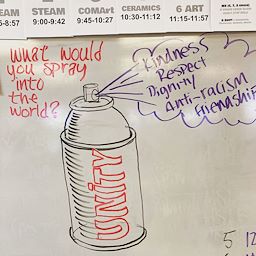 STEAM
STEAM
COMart
CERAMICS
6 ART
5-8:57
9:00-9:42
9:45-10:27
10:30-11:12
11:15-11:57
what would
you spray
into
the
world?
Kindness
Respect
Dignity
Anti-racism
Friendship
UNITY
5 12